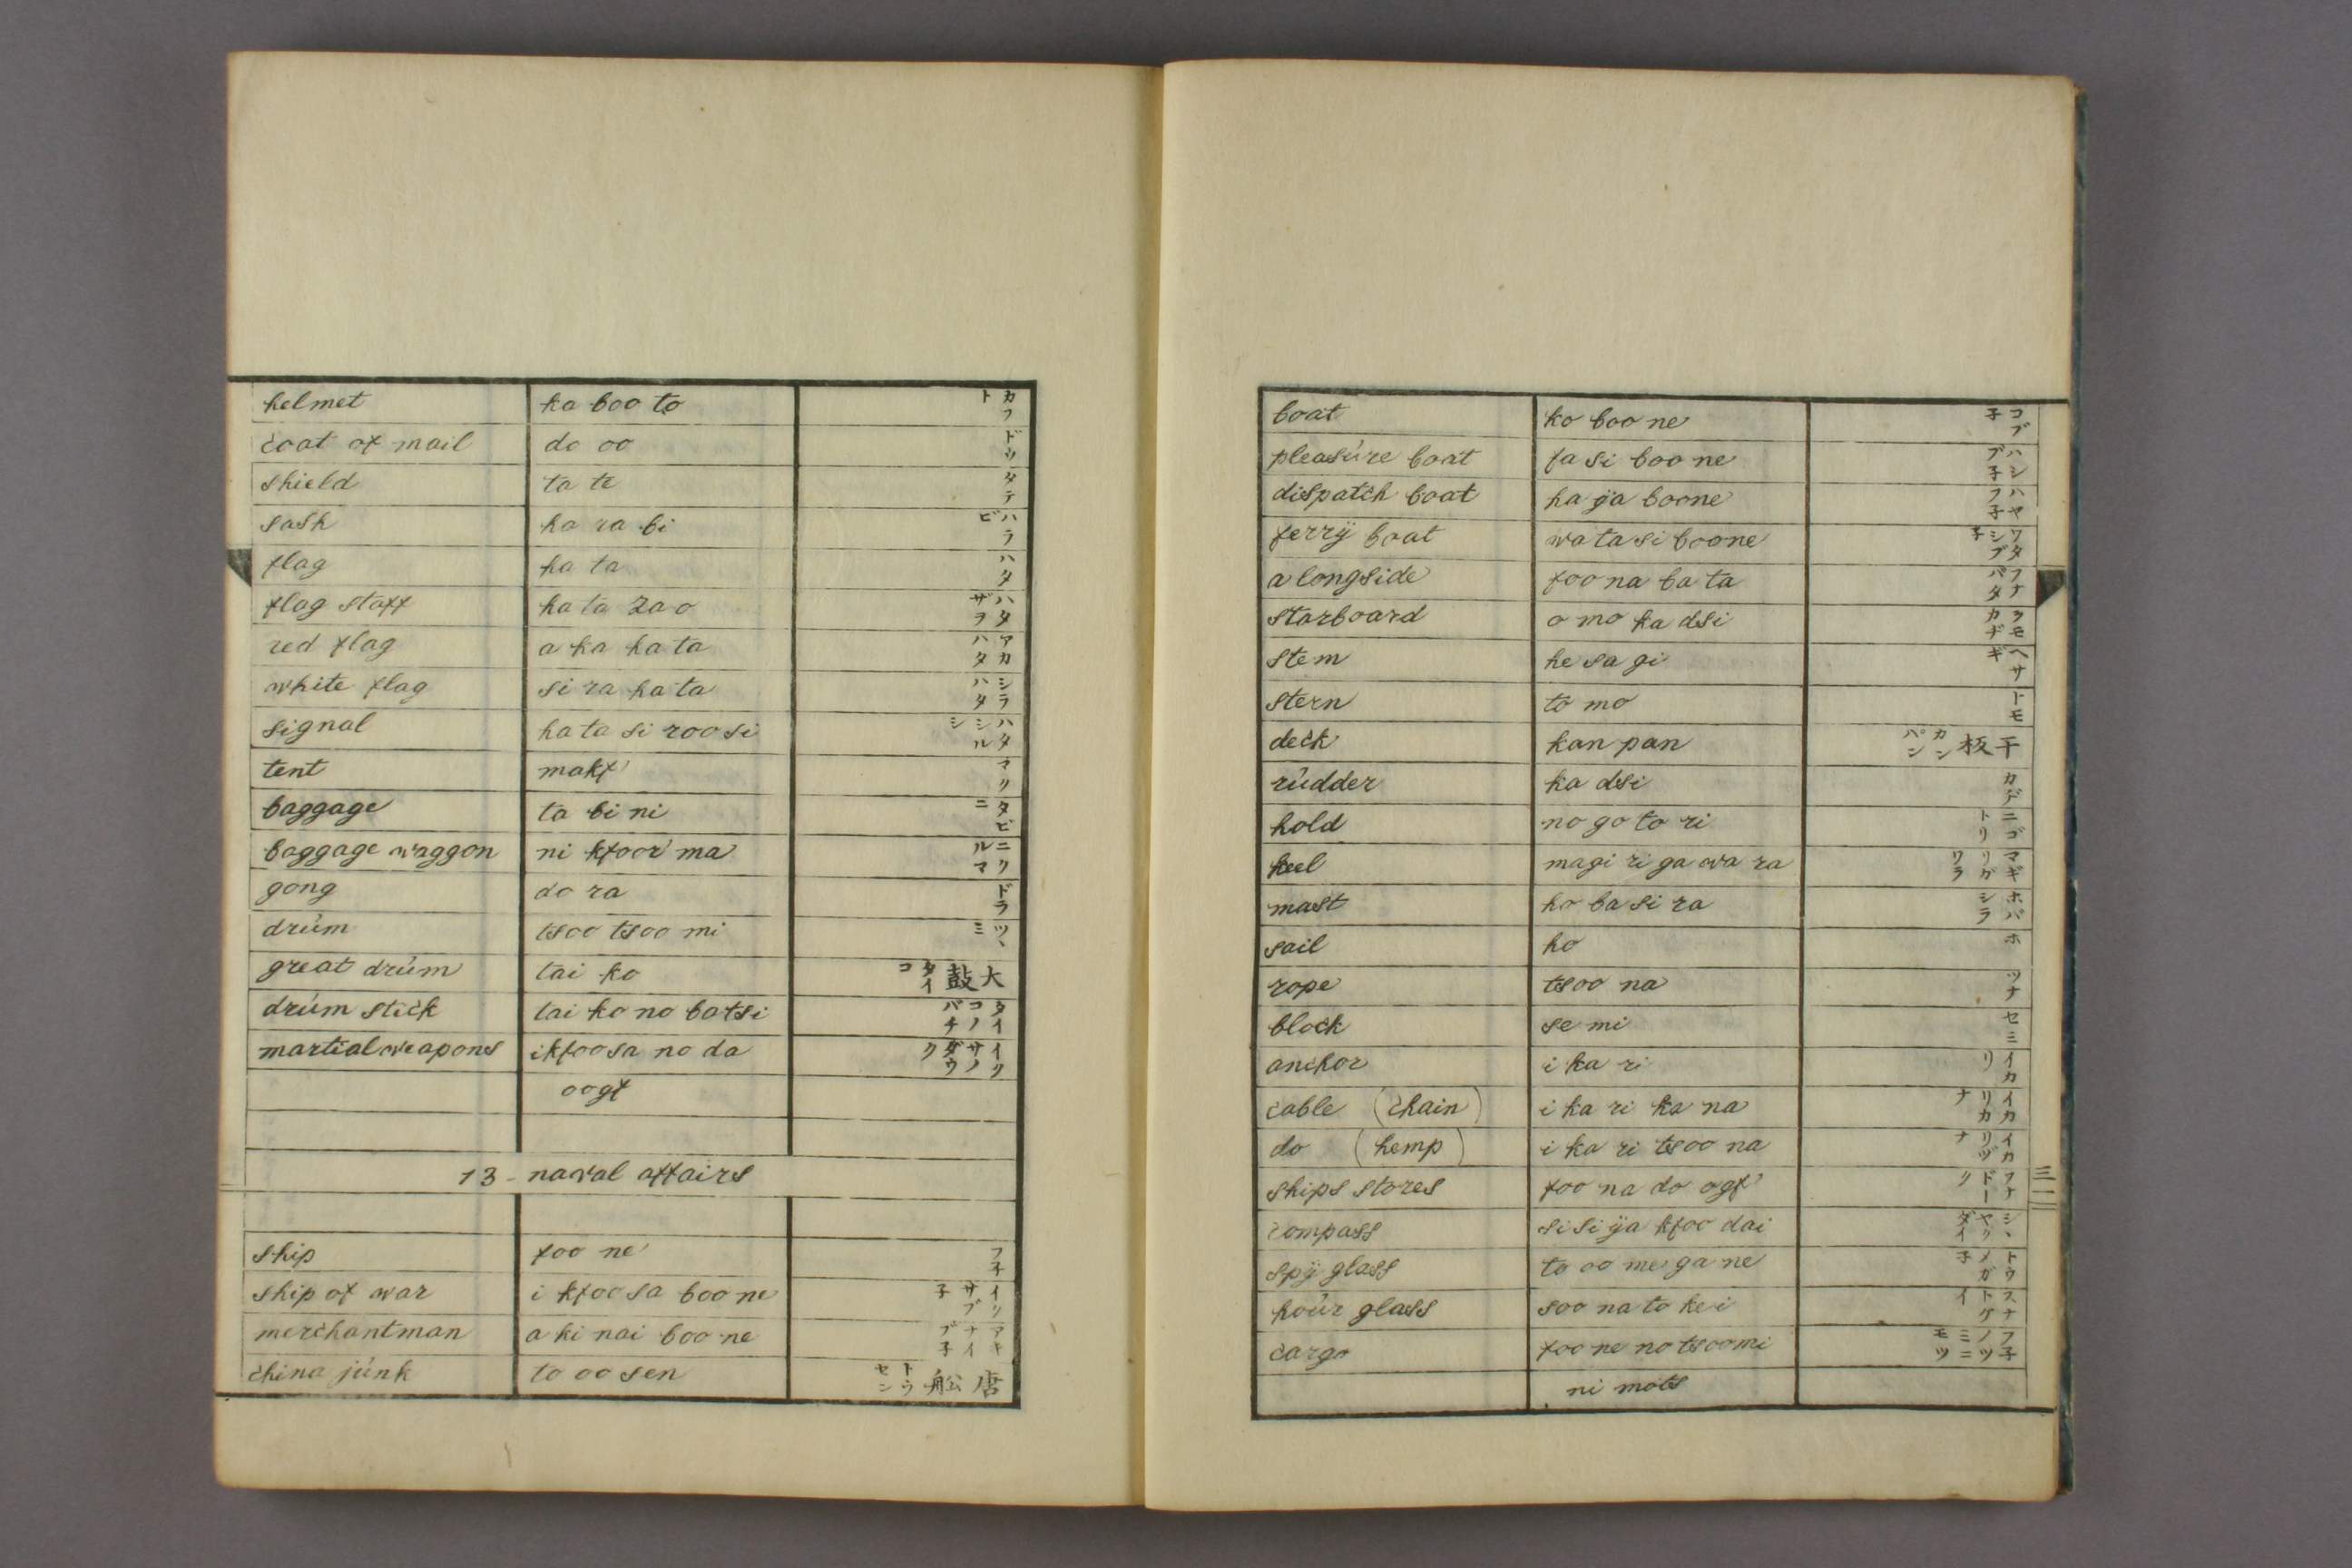 helmet ka boo to カフト
coat of mail do oo ドウ
shield ta te タテ
sash ha ra bi ハラビ
flag ha ta ハタ
flag staff ha ta zao ハタザヲ
red flag a ka ha ta アカハタ
white flag si ra ha ta シラハタ
signal ha ta si roo si ハタシルシ
tent makf マク
baggage ta bi ni タビニ
baggage waggon ni kfoor ma ニクルマ
gong do ra ドラ
drúm tsoo tsoo mi ツヽミ
great drúm tai ko 大鼓 タイコ
drúm stick tai ko no batsi タイコノバチ
martial weapons ikfoosa no da イクサノダウク
oogf
13 - naval affairs
ship foo ne フ子
ship of war i kfoo sa boo ne イクサブ子
merchantman a ki nai boo ne アキナイブ子
china júnk to oo sen 唐舩 トウセン
boat ko boo ne コブ子
pleasúre boat fa si boo ne ハシブ子
dispatch boat ha ÿa boone ハヤフ子
ferrÿ boat wa ta si boone ワタシブ子
a longside foo na ba ta フナバタ
starboard o mo ka dsi ヲモカヂ
stem he sa gi ヘサギ
stern to mo トモ
deck kan pan 干板 カンパン
rúdder ka dsi カヂ
hold no go to ri ニゴトリ
keel magi ri ga wa ra マギリガワラ
mast ho ba si ra ホバシラ
sail ho ホ
rope tsoo na ツナ
block se mi セミ
anchor i ka ri イカリ
cable (chain) i ka ri ka na イカリカナ
do (hemp) i ka ri tsoo na イカリヅナ
ships stores foo na do ogf フナドーク
compass si si ÿa kfoo dai シヽヤクダイ
spÿ glass to oo me ga ne トウメガ子
hoúr glass soo na to ke i スナトケイ
cargo foo ne no tsoomi フ子ノツミニモツ
ni mots
三一